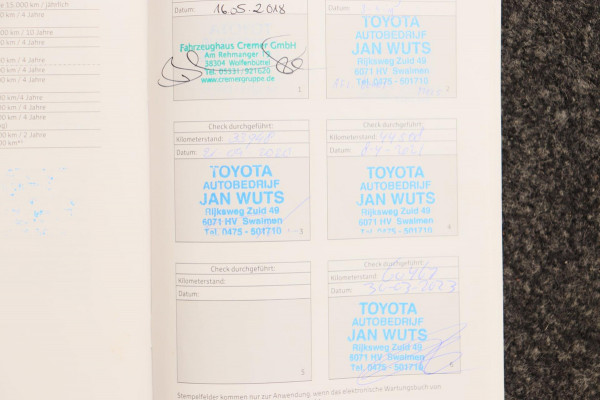 15.000 km / jährlich
km / 4 Jahre
00 km / 10 Jahre
km / 4 Jahre
km / 4 Jahre
km / 4 Jahre
km/4 Jahre
km / 4 Jahre
km / 2 Jahre
Datum: 16.05.2018
Fahrzeughaus Cremer GmbH
Am Rehmanger 12
38304 Wolfenbüttel
Tel. 05331/921620
www.cremergruppe.de
1
TOYOTA
AUTOBEDRIJF
JAN WUTS
Rijksweg Zuid 49
6071 HV Swalmen
Tel.
2
Check durchgeführt:
Kilometerstand:
Datum:
TOYOTA
AUTOBEDRIJF
JAN WUTS
Rijksweg Zuid 49
6071 HV Swalmen
Tel. 0475 - 501710
3
Check durchgeführt:
Kilometerstand:
Datum:
TOYOTA
AUTOBEDRIJF
JAN WUTS
Rijksweg Zuid 49
6071 HV Swalmen
Tel. 0475 - 501710
4
Check durchgeführt:
Kilometerstand:
Datum:
5
Check durchgeführt:
Kilometerstand:
Datum:
TOYOTA
AUTOBEDRIJF
JAN WUTS
Rijksweg Zuid 49
6071 HV Swalmen
Tel. 0475 - 501710
Stempelfelder kommen nur zur Anwendung, wenn das elektronische Wartungsbuch von